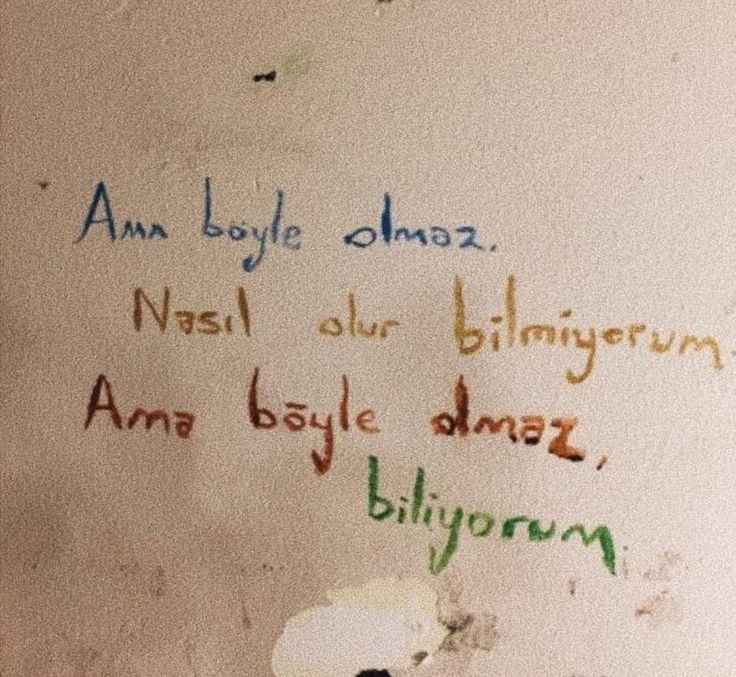 Ama böyle olmaz.
Nasıl olur bilmiyorum.
Ama böyle olmaz,
biliyorum.